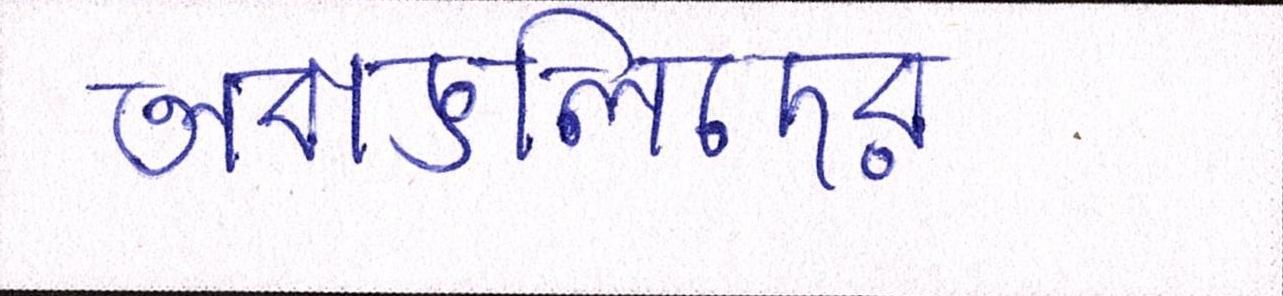 অবাঙলিদের